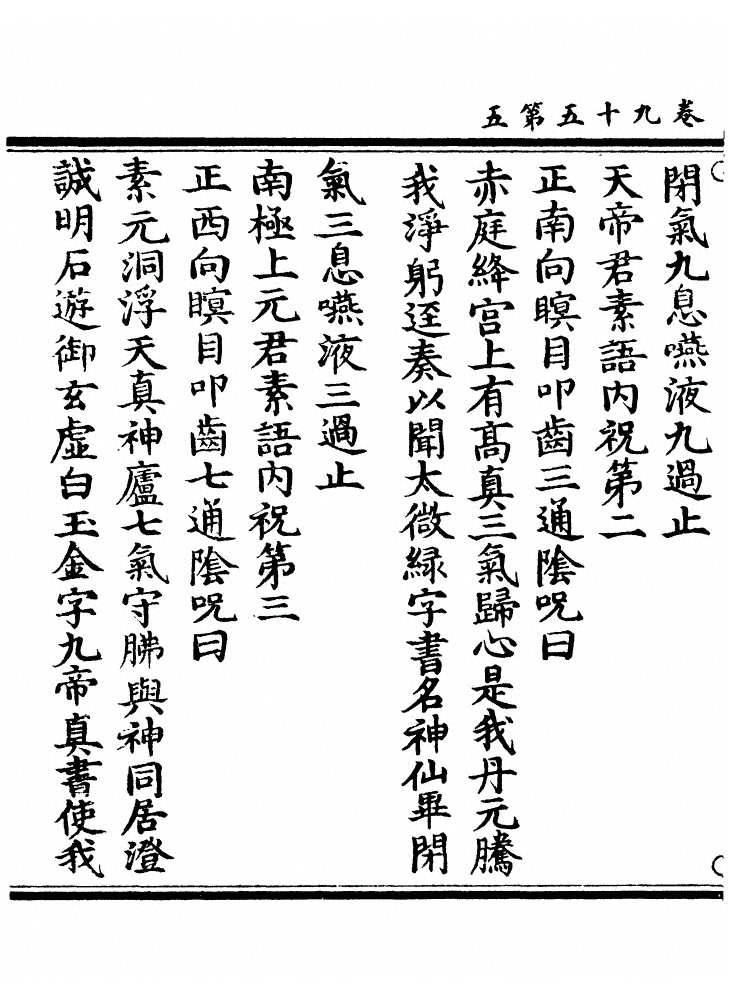 卷九十五第五
閉氣九息嚥液九過止
天帝君素語内祝第二
正南向瞑目叩齒三通陰呪曰
赤庭絳宫上有髙真三氣歸心是我丹元騰
我淨躬逕奏以聞太微緑字書名神仙畢閉
氣三息嚥液三過止
南極上元君素語内祝第三
正西向瞑目叩齒七通陰呪曰
素元洞浮天真神廬七氣守胇與神同居澄
誠明石遊御玄虛白玉金字九帝真書使我